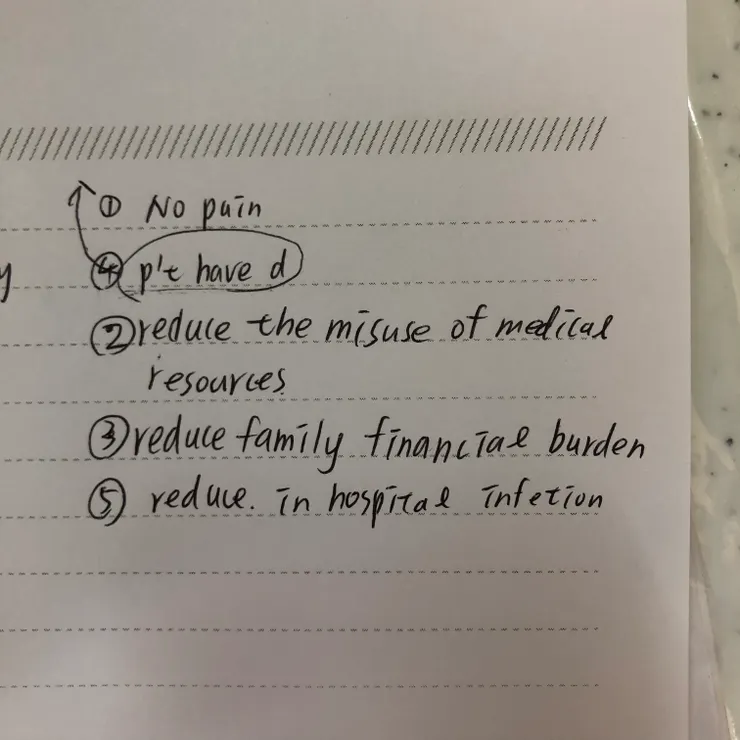 ① No pain
y ④ p't have d
② reduce the misuse of medical
resources
③ reduce family financial burden
⑤ reduce. in hospital infetion